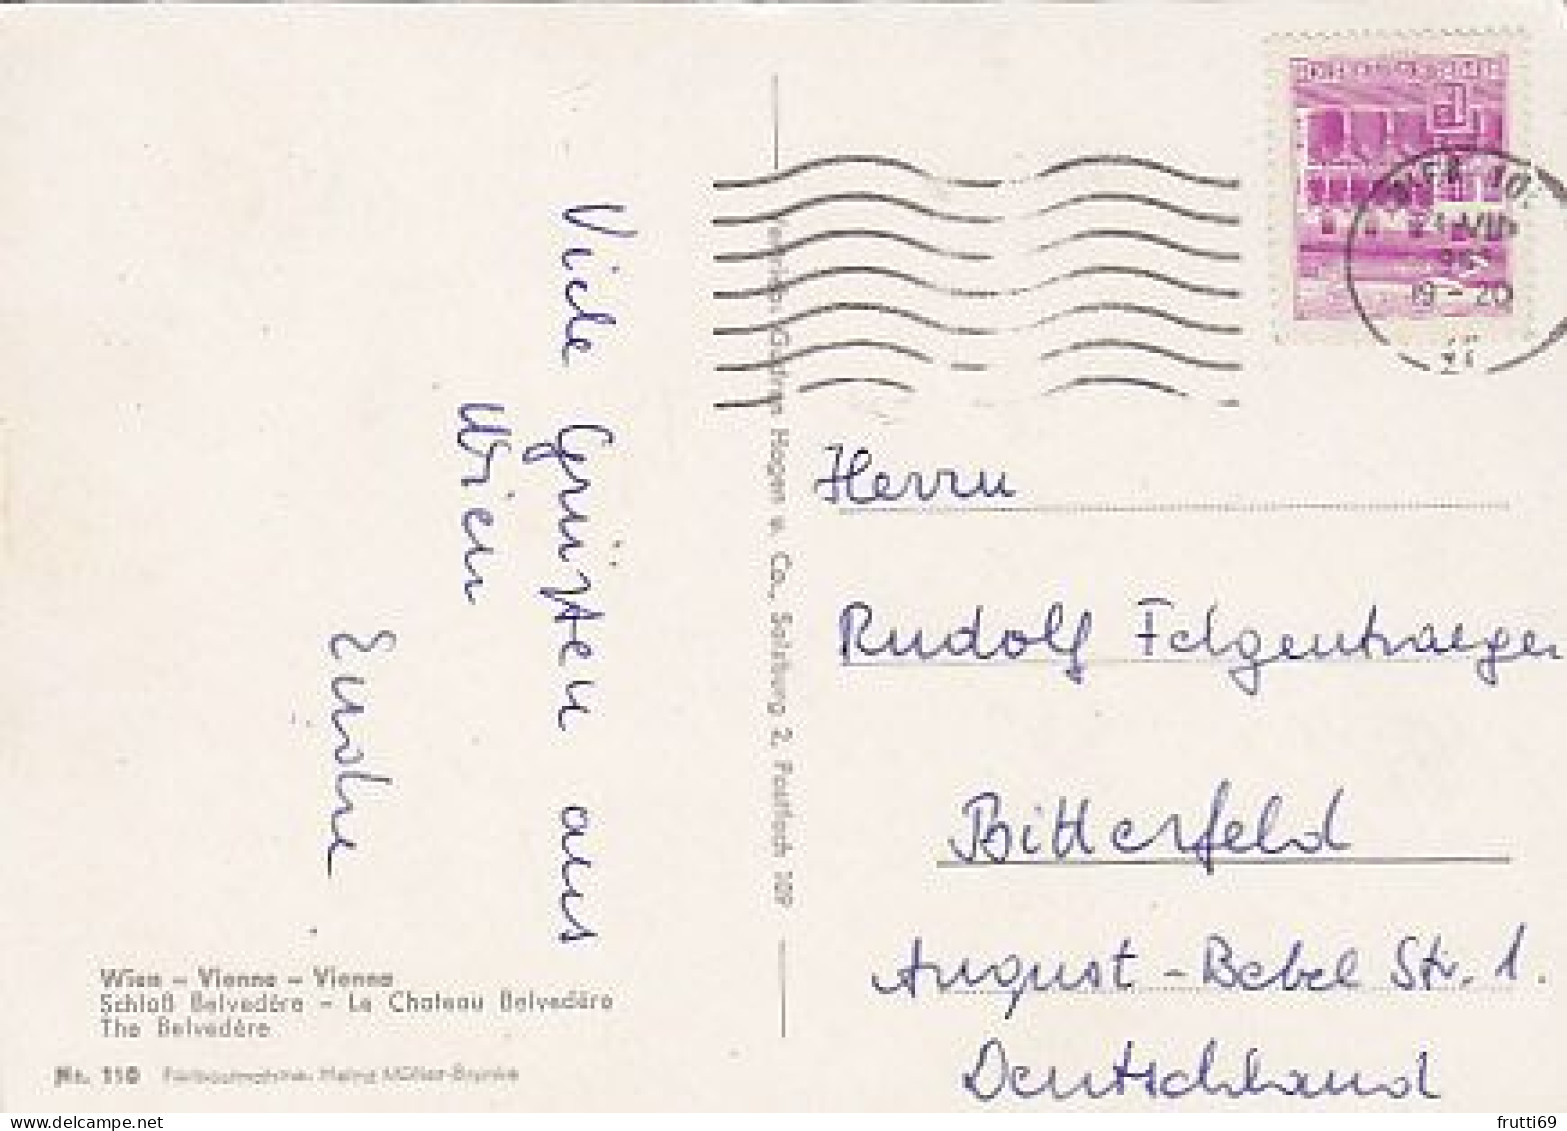 Viele Grüße aus
Wien
Wien - Vienne - Vienna
Schloß Belvedère - Le Chateau Belvedère
The Belvedère
Nr. 110 Farbaufnahme: Heinz Müller-Brunke
Hagen u. Co., Salzburg 2, Postfach 109
19 - 20
Herrn
Rudolf Felgentraeger
Bitterfeld
August-Bebel Str. 1.
Deutschland
frutti69